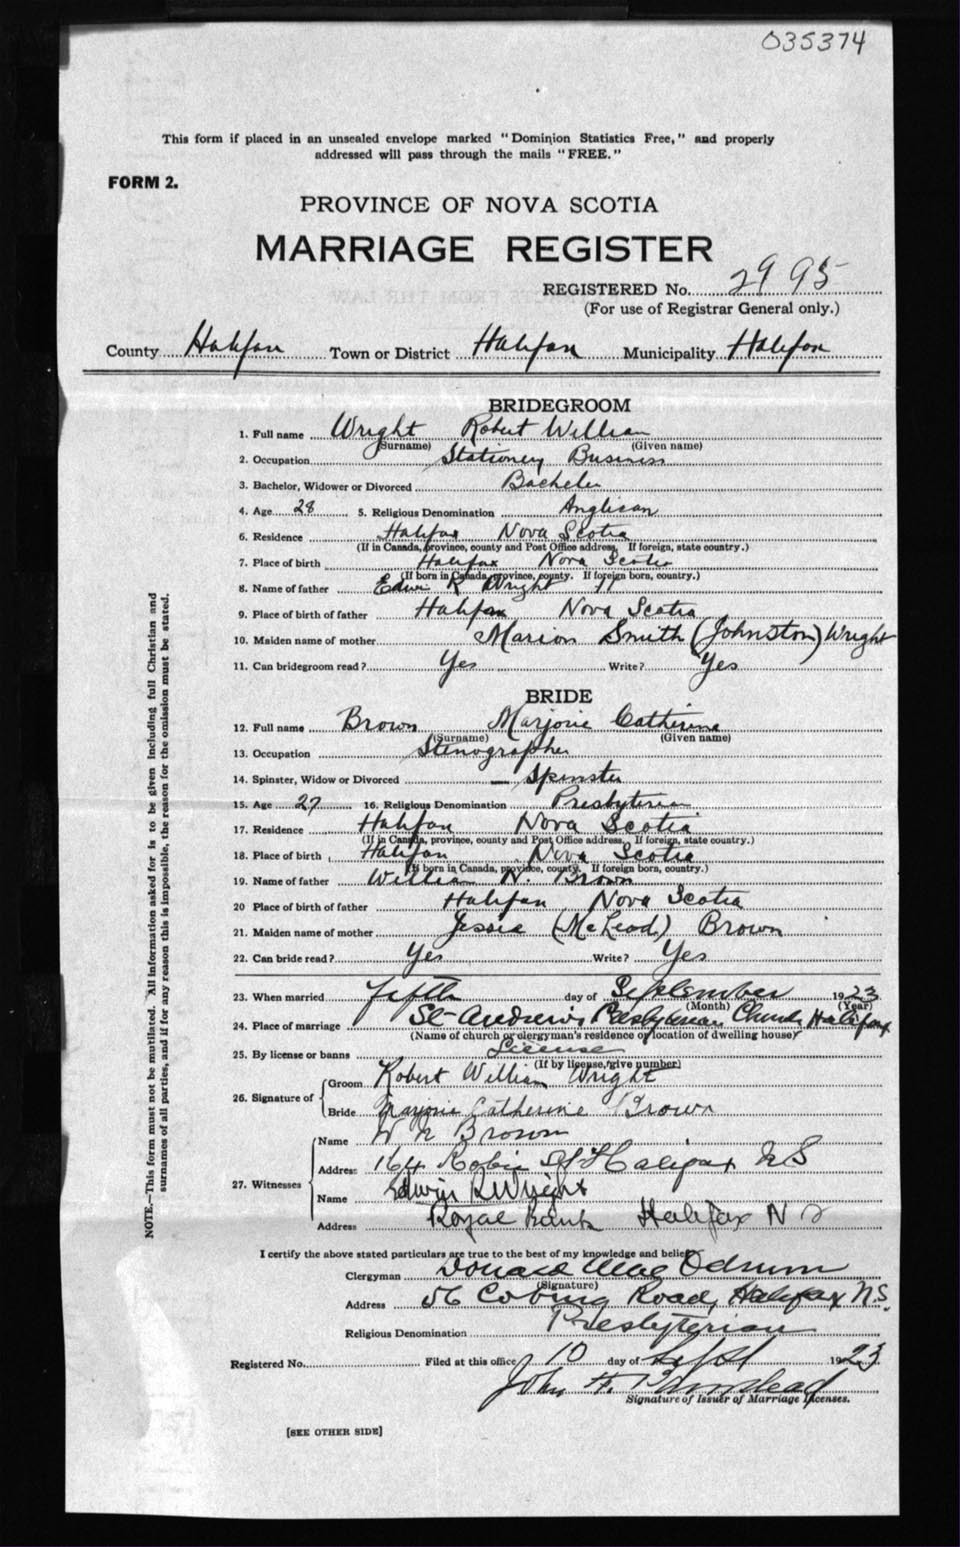 035374
This form if placed in an unsealed envelope marked "Dominion Statistics Free," and properly
addressed will pass through the mails "FREE."
FORM 2.
PROVINCE OF NOVA SCOTIA
MARRIAGE REGISTER
REGISTERED No. 2995
(For use of Registrar General only.)
County Halifax Town or District Halifax Municipality Halifax
BRIDEGROOM
1. Full name Wright Robert William
(Surname) (Given name)
2. Occupation Stationery Business
3. Bachelor, Widower or Divorced Bachelor
4. Age 28 5. Religious Denomination Anglican
6. Residence Halifax Nova Scotia
(If in Canada, province, county and Post Office address. If foreign, state country.)
7. Place of birth Halifax Nova Scotia
(If born in Canada, province, county. If foreign born, country.)
8. Name of father Edwin R Wright
9. Place of birth of father Halifax Nova Scotia
10. Maiden name of mother Marion Smith (Johnston) Wright
11. Can bridegroom read? Yes Write? Yes
BRIDE
12. Full name Brown Marjorie Catherine
(Surname) (Given name)
13. Occupation Stenographer
14. Spinster, Widow or Divorced – Spinster
15. Age 27 16. Religious Denomination Presbyterian
17. Residence Halifax Nova Scotia
(If in Canada, province, county and Post Office address. If foreign, state country.)
18. Place of birth Halifax Nova Scotia
(If born in Canada, province, county. If foreign born, country.)
19. Name of father William N. Brown
20 Place of birth of father Halifax Nova Scotia
21. Maiden name of mother Jessie (McLeod) Brown
22. Can bride read? Yes Write? Yes
23. When married fifth day of September 1923
(Month) (Year)
24. Place of marriage St-Andrew's Presbyterian Church Halifax
(Name of church or clergyman's residence or location of dwelling house)
25. By license or banns License
(If by license, give number)
26. Signature of Groom Robert William Wright
Bride Marjorie Catherine Brown
27. Witnesses Name W N Brown
Address 164 Robie St Halifax NS
Name Edwin R Wright
Address Royal Bank Halifax N S
I certify the above stated particulars are true to the best of my knowledge and belief.
Clergyman Donald Mac Odrum
(Signature)
Address 56 Coburg Road, Halifax N.S.
Religious Denomination Presbyterian
Registered No. Filed at this office 10 day of Sept 1923
John H
Signature of Issuer of Marriage Licenses.
[SEE OTHER SIDE]
NOTE.—This form must not be mutilated. All information asked for is to be given including full Christian and
surnames of all parties, and if for any reason this is impossible, the reason for the omission must be stated.